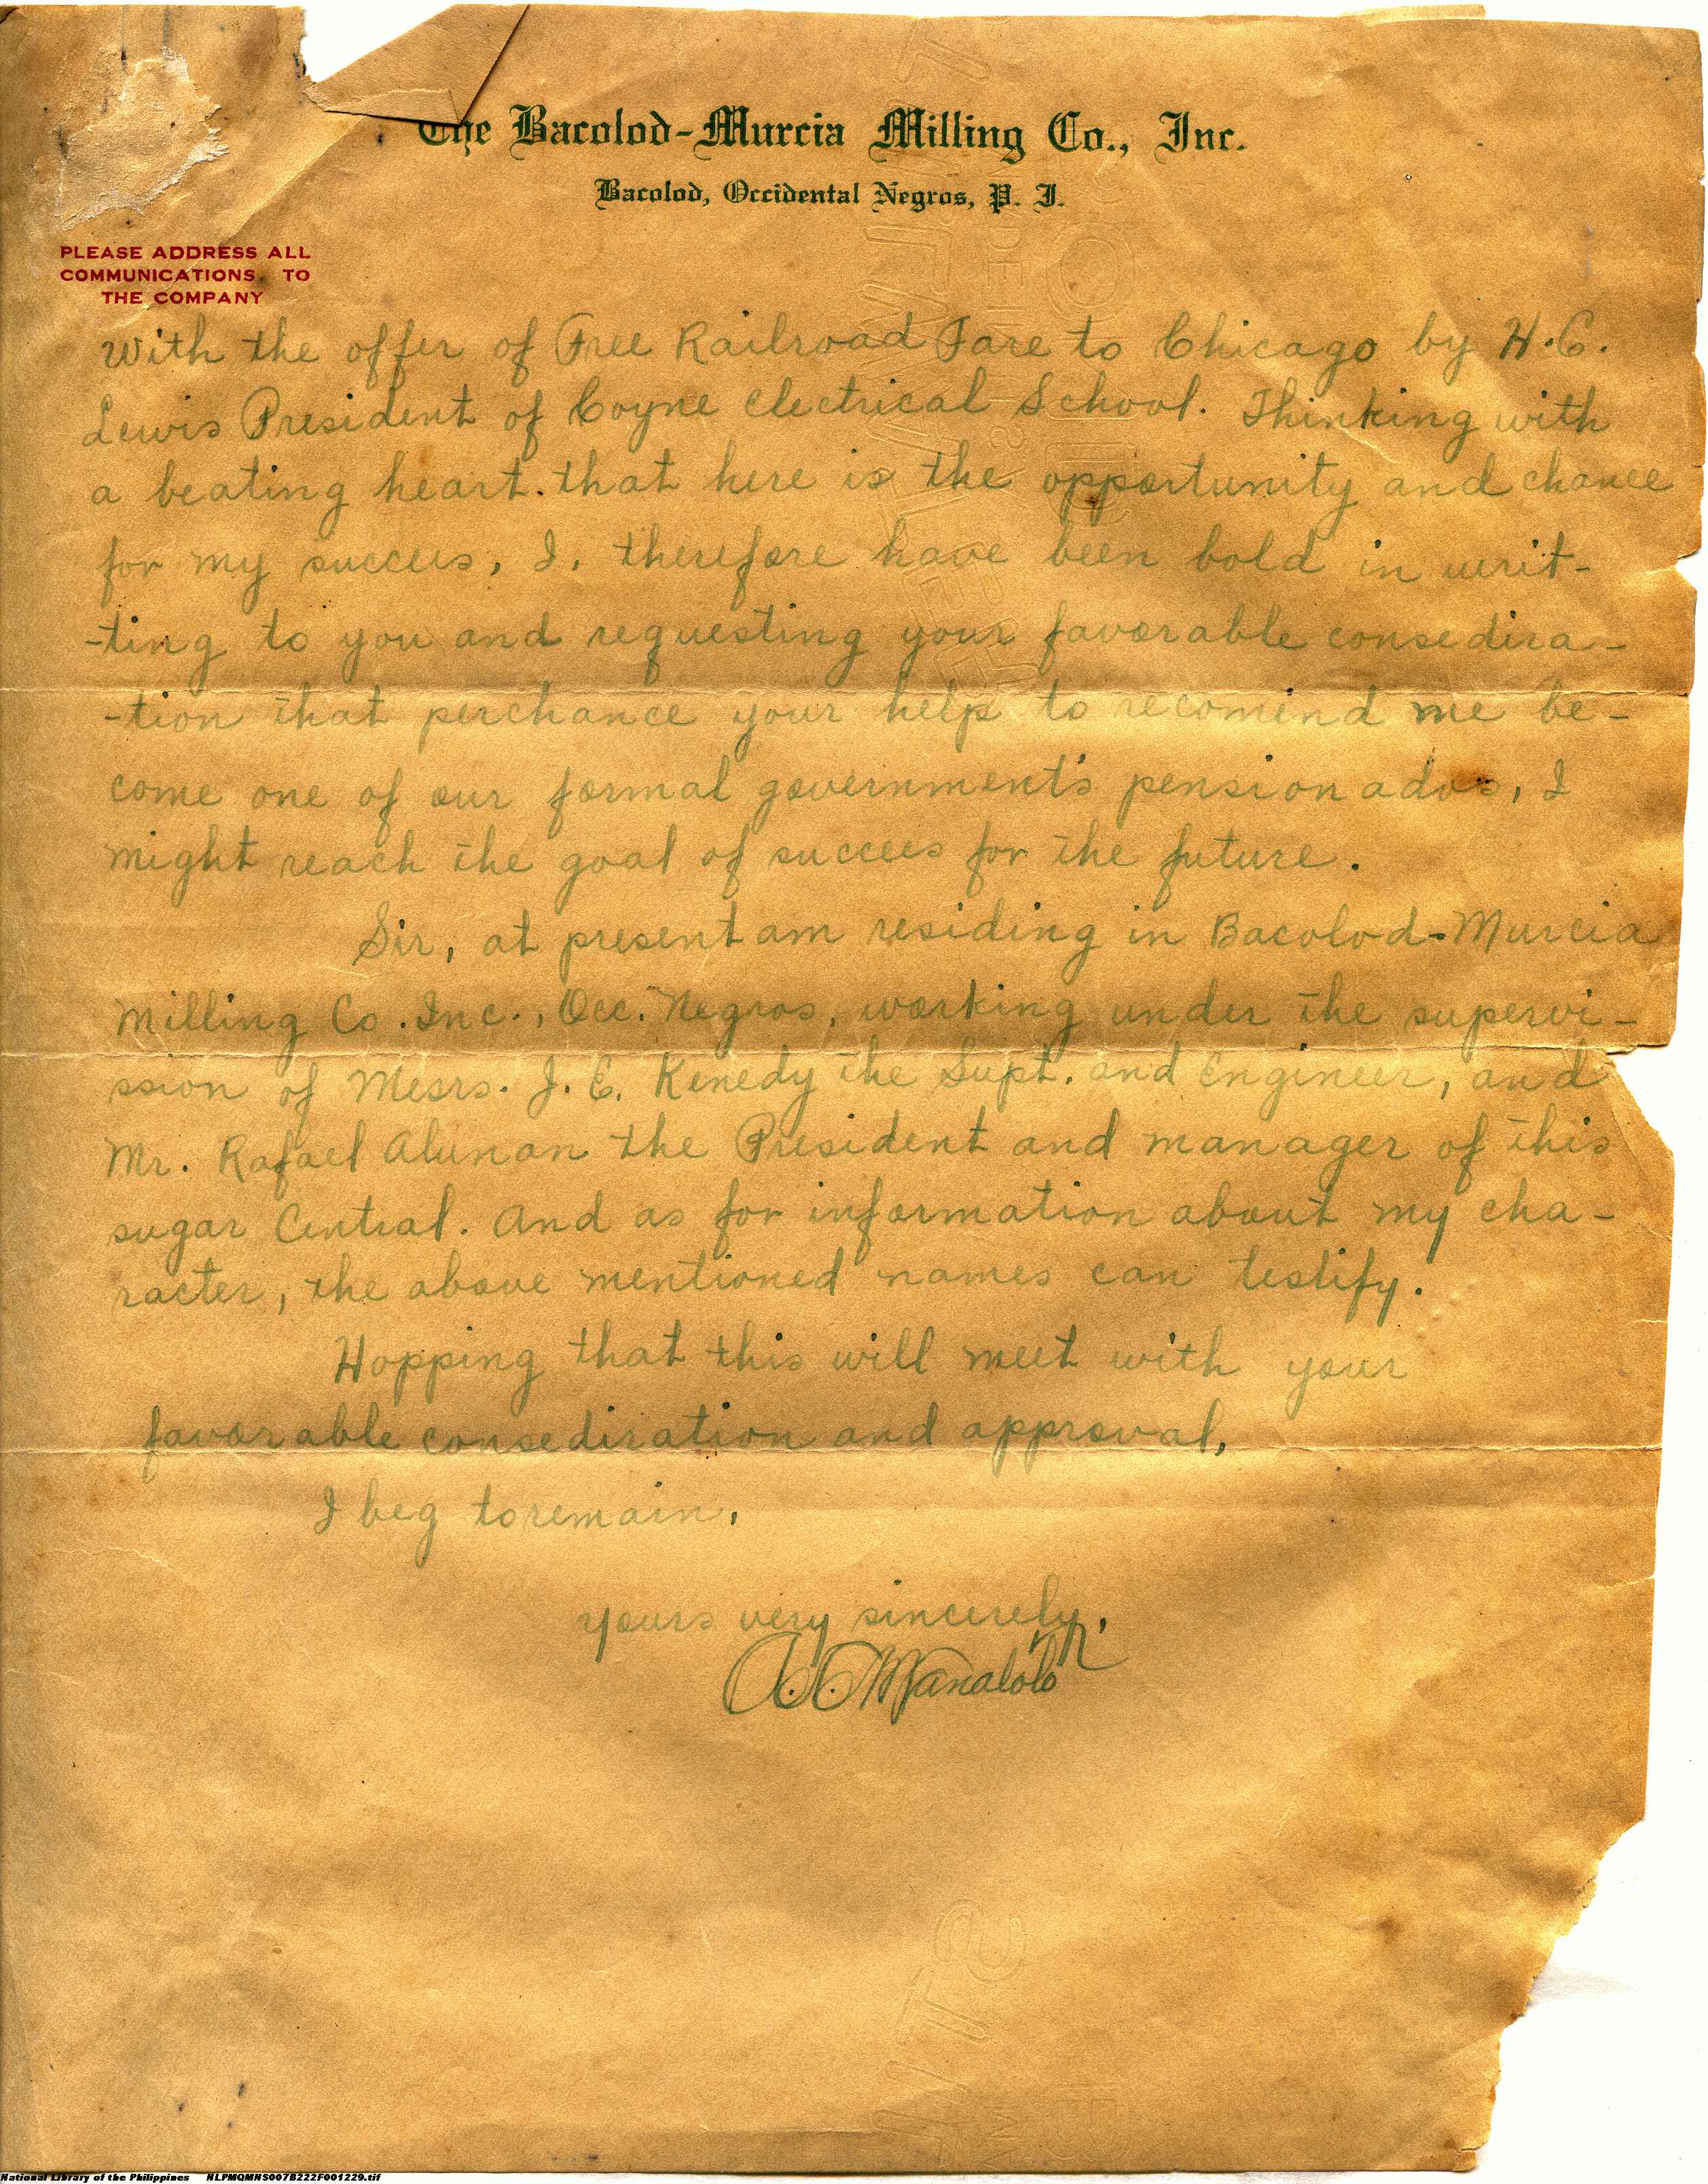 The Bacolod-Murcia Milling Co., Inc.
Bacolod, Occidental Negros, P. I.
PLEASE ADDRESS ALL
COMMUNICATIONS TO
THE COMPANY
With the offer of Free Railroad Fare to Chicago by H.C.
Lewis President of Coyne Electrical School. Thinking with
a beating heart that here is the opportunity and chance
for my success, I, therefore have been bold in writ-
-ting to you and requesting your favorable consedira-
-tion that perchance your help to recomend me be-
come one of our formal government's pensionados, I
might reach the goal of success for the future.
Sir, at present am residing in Bacolod-Murcia
Milling Co. Inc., Occ. Negros, working under the supervi-
ssion of Mesrs. J. E. Kenedy the Supt. and Engineer, and
Mr. Rafael Alunan the President and manager of this
sugar Central. And as for information about my cha-
racter, the above mentioned names can testify.
Hopping that this will meet with your
favorable consediration and approval,
I beg to remain,
Yours very sincerely,
Manalolo
National Library of the Philippines NLPMQMNS007B222F001229.tif